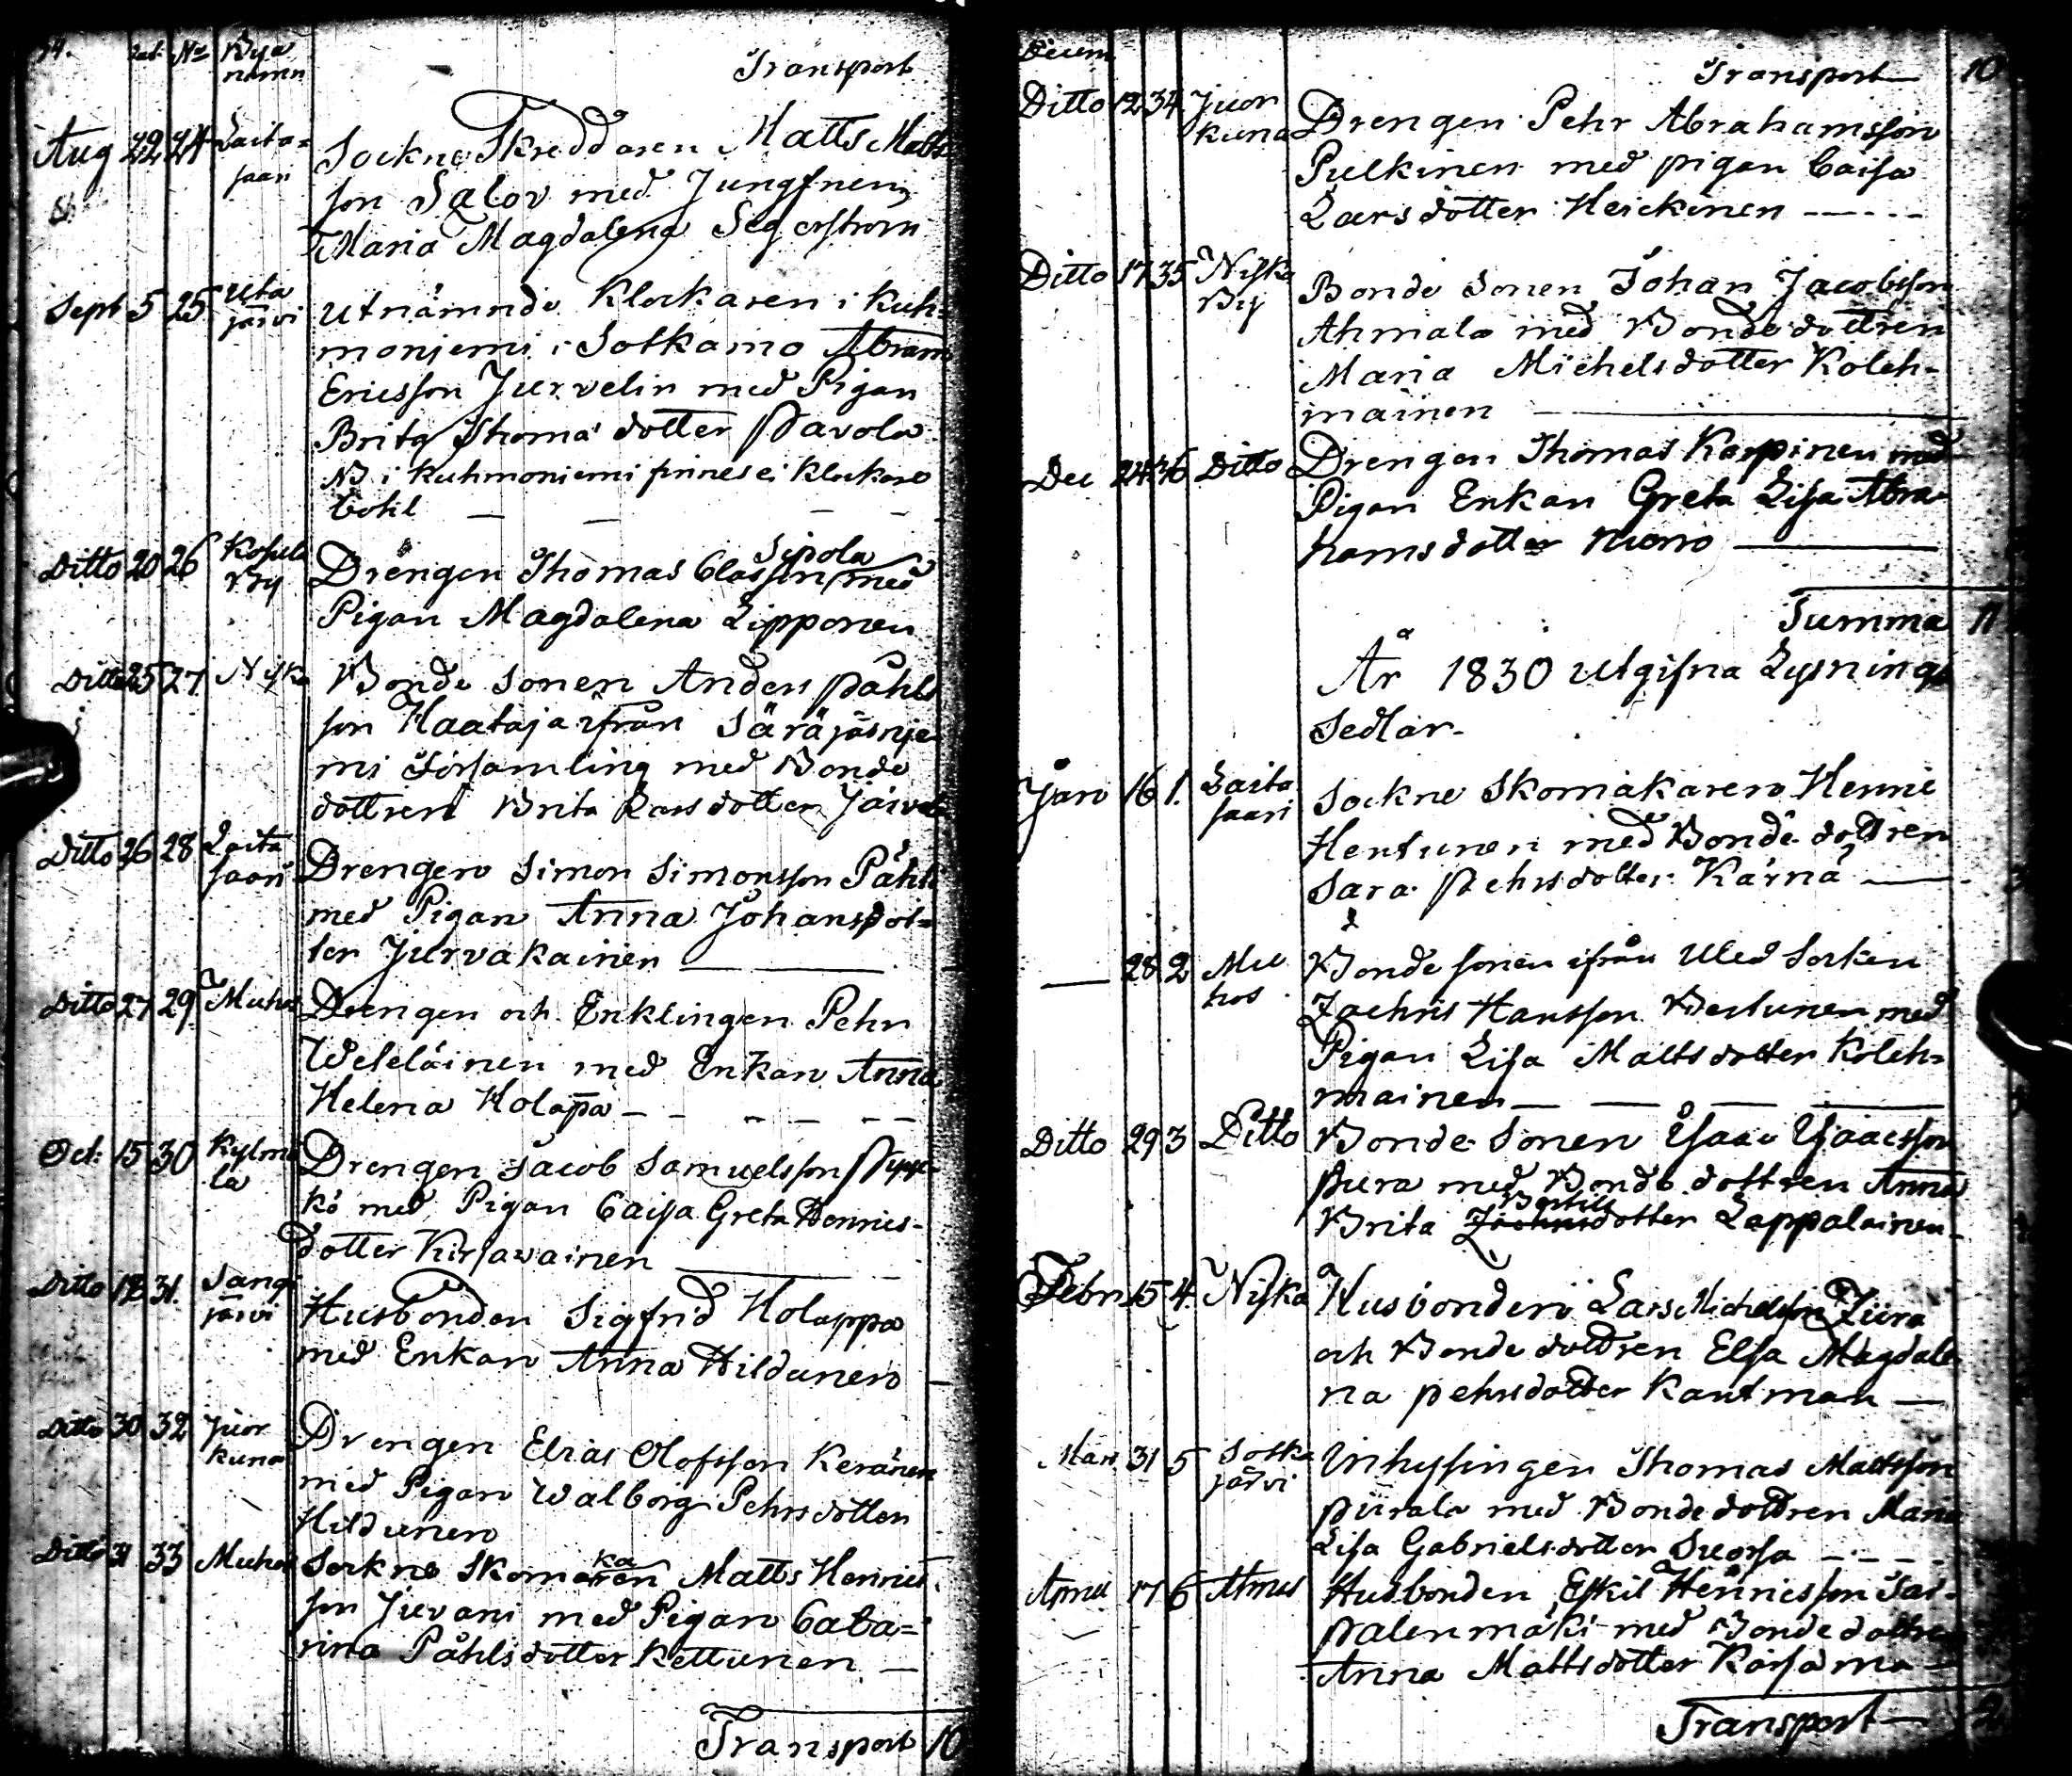 Dat. No Bya
namn
Transport
Aug 22 24 Laita=
saari
Sockne Skreddaren Matts Matts
son Salov med Jungfrun
Maria Magdalena Segerstrom
Sept 5 25 Uta
järvi
Utnämnde Klockaren i Kuh=
moniemi i Sotkamo Abram
Ericsson Jurvelin med Pigan
Brita Thomas dotter Pavola
NB i Kuhmoniemi finnes ei Klockare
bohl
Ditto 20 26 Kosula
By
Drengen Thomas Classon Sipola med
Pigan Magdalena Lipponen
Ditto 25 27 Niska
Bonde Sonen Anders Påhls
son Haataja ifrån Säräjäsnje
mi Församling med Bonde
dottren Brita Larsdotter
Ditto 26 28 Laita
saari
Drengen Simon Simonsson Påhls
med Pigan Anna Johansdot=
ter Jurvakainen
Ditto 27 29 Muhos
Drengen och Enklingen Pehr
Weteläinen med Enkan Anna
Helena Holapa
Oct. 15 30 Kylmä
lä
Drengen Jacob Samuelsson Pyyk
kö med Pigan Caisa Greta Henrics-
dotter Kirsawainen
Ditto 18 31. Sangi
järvi
Husbonden Sigfrid Holappa
med Enkan Anna Hildunen
Ditto 30 32 Juor
kuna
Drengen Elias Olofsson Keränen
med Pigan Walborg Pehrsdotter
Hildunen
Ditto 31 33 Muhos
Sockne Skomakaren Matts Henrics
son Juvani med Pigan Cata=
rina Påhlsdotter Kettunen
Transport 10
Decem
Transport 10
Ditto 12 34 Juor
kuna
Drengen Pehr Abrahamsson
Pulkinen med pigan Caisa
Larsdotter Heickinen
Ditto 17 35 Niska
By
Bonde Sonen Johan Jacobsson
Ahmala med Bonde dottren
Maria Michelsdotter Koleh-
mainen
Dec 24 36 Ditto
Drengen Thomas Karpinen med
Pigan Enkan Greta Lisa Abra
hamsdotter
Summa 11
År 1830 Utgifna Lysnings
Sedlar.
Jan 16 1. Laita
saari
Sockne Skomakaren Henric
Hentunen med Bonde dottren
Sara Pehrsdotter Kärnä
28 2 Mu
hos
Bondesonen ifrån Uleå Socken
Zachris Hansson med
Pigan Lisa Mattsdotter Koleh=
mainen
Ditto 29 3 Ditto
Bonde Sonen Isaac Isaacsson
Pura med Bonde dottren Anna
Brita Bertils dotter Lappalainen
Febr 15 4. Niska
Husbonden Lars Michelsson Jura
och Bonde dottren Elsa Magdale
na pehrsdotter Kantman
Mars 31 5 Sotka
järvi
Inhysingen Thomas Mattsson
Purala med Bondedottren Maria
Lisa Gabrielsdotter Suorsa
April 17 6 Ahmas
Husbonden Eskil Henricsson Sar
palenmäki med Bondedottren
Anna Mattsdotter Karsama
Transport 2